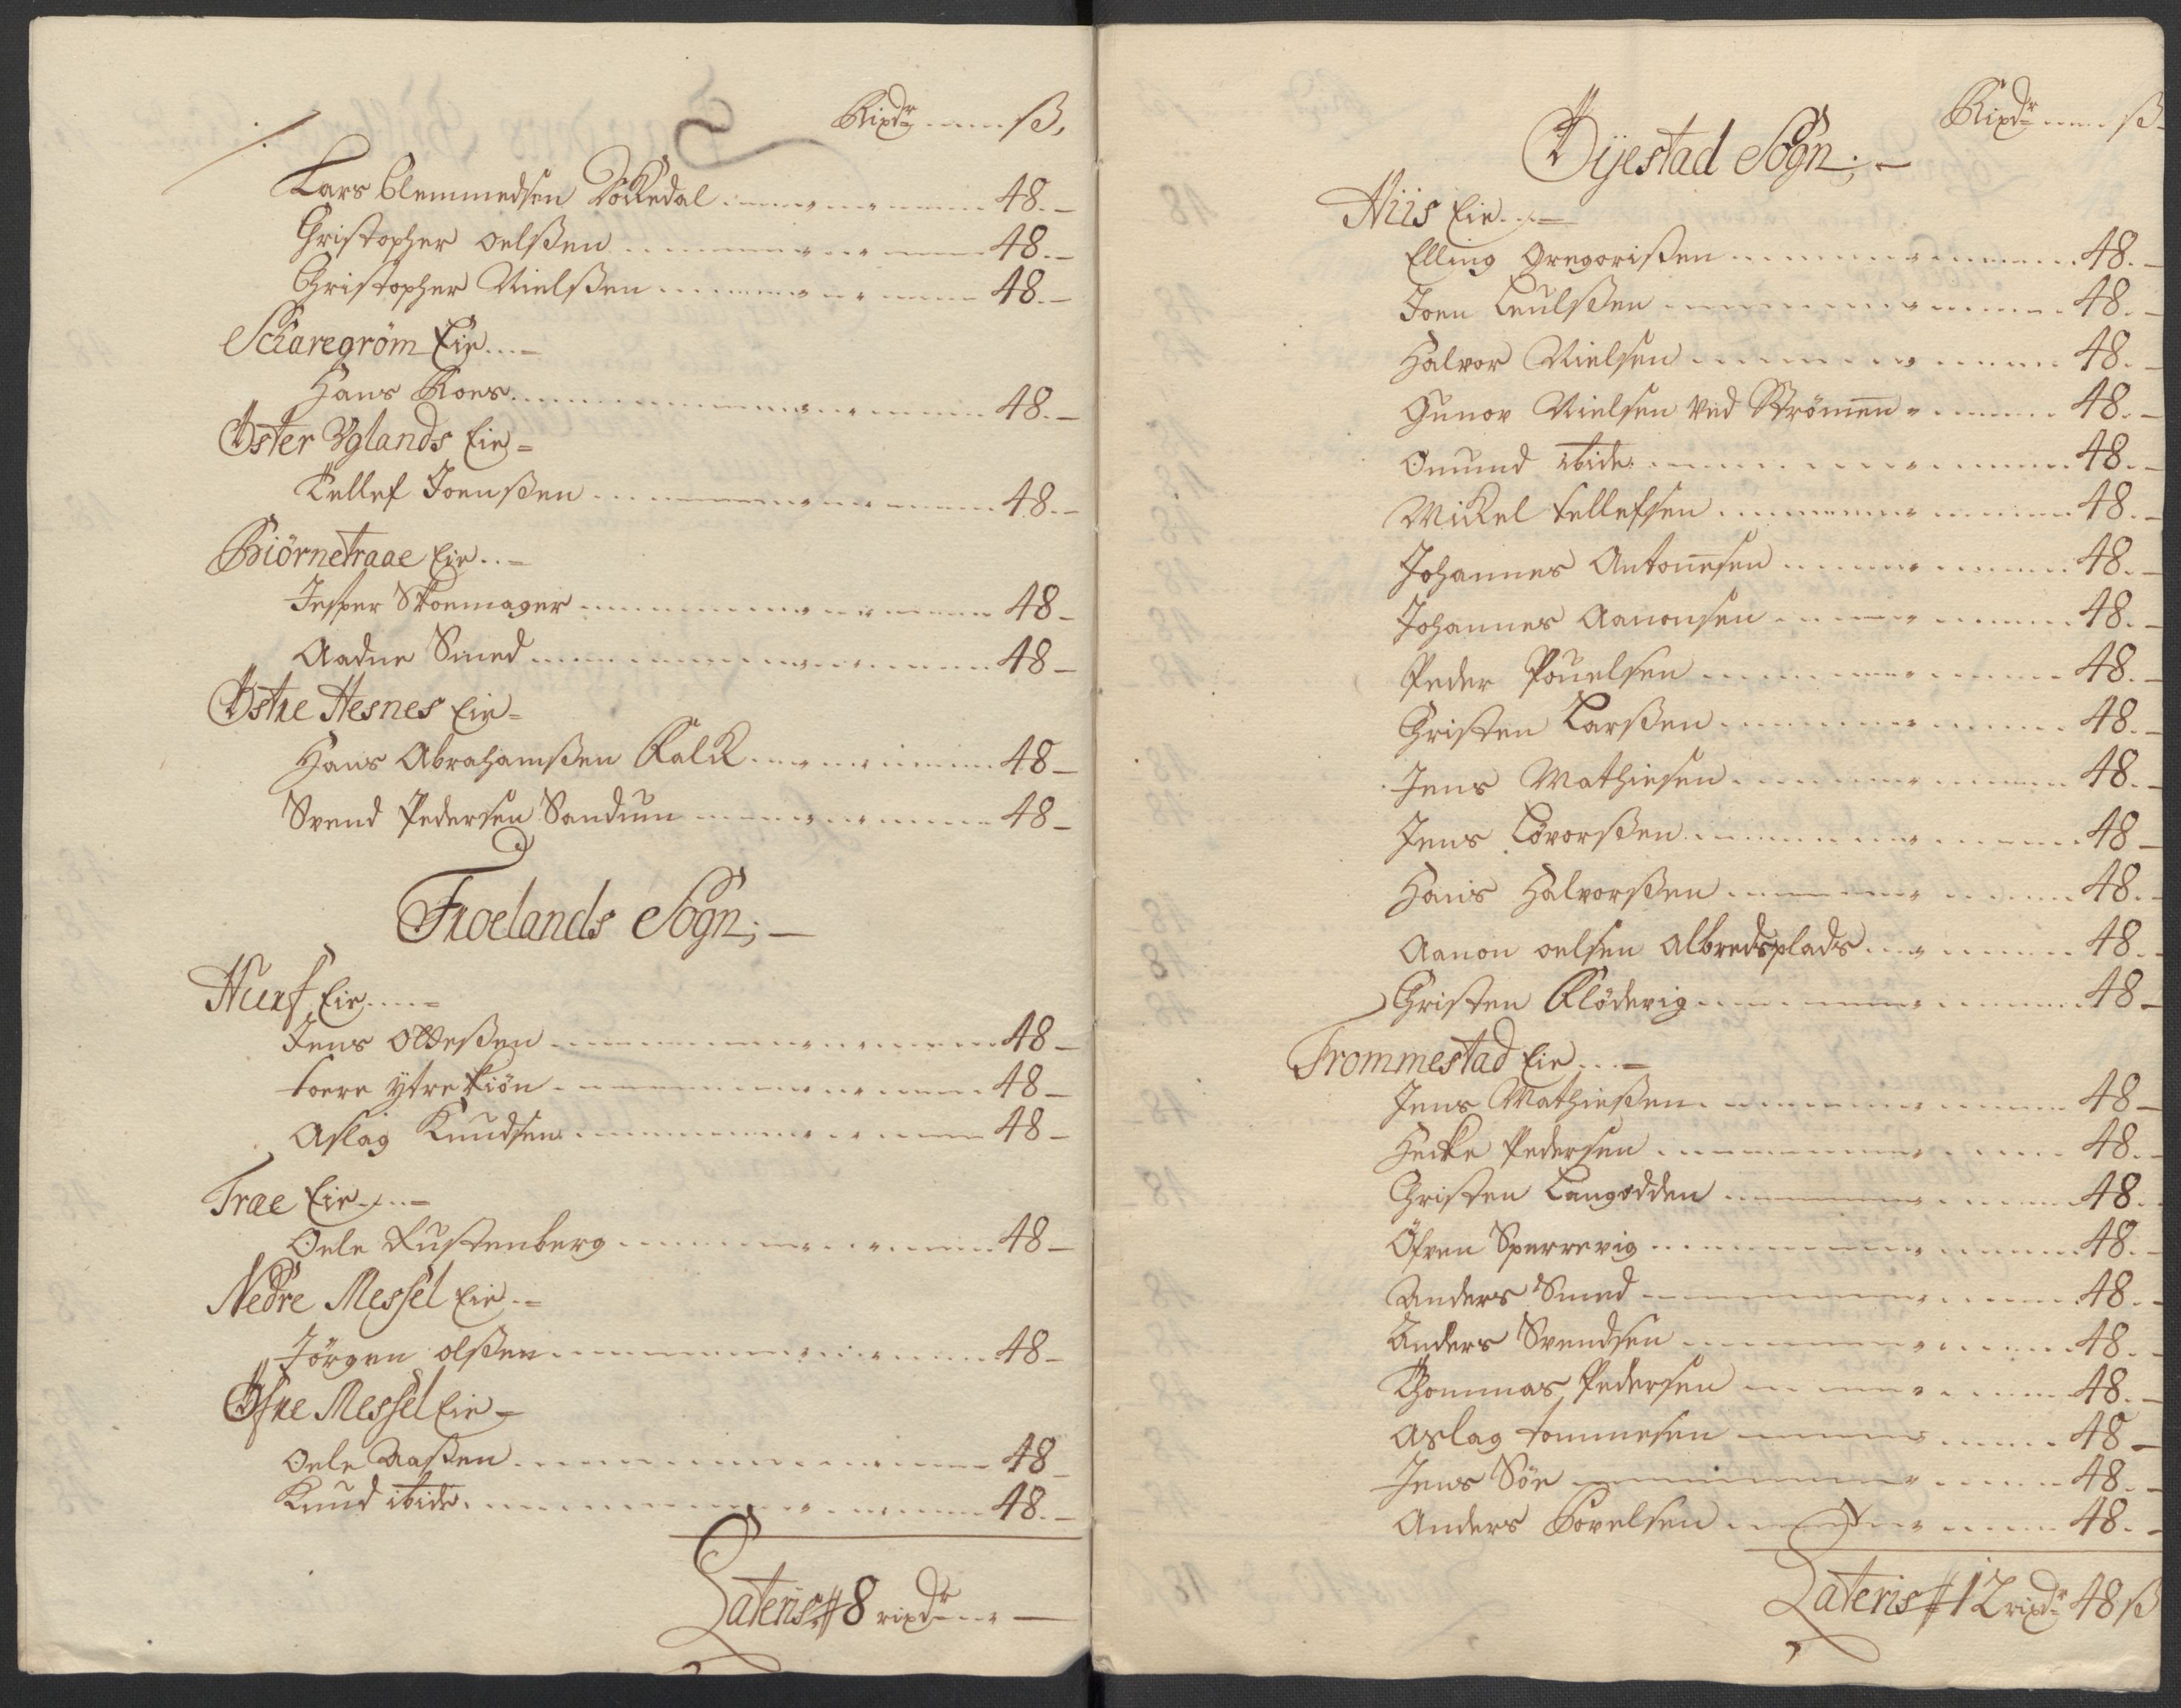 Rixdr ß.
Lars Clemmedsen Dokkedal 48.
Christopher Oelsßen 48.
Christopher Nielsßen 48.
Scharegröm Eie
Hans Roes 48.
Öster Øglands Eie
Tellef Joensßen 48.
Biörnetraae Eie
Jesper Skoemager 48
Aadne Smed 48
Östre Hesnes Eie
Hans Abrahamsßen Kalk 48
Svend Pedersen Sandum 48
Froelands Sogn;
Hurf Eie
Jens Olleßen 48
Toere ytre Kiön 48
Aslag Knudsen 48
Træe Eie
Oele Rustenberg 48
Nedre Messel Eie
Jörgen Olsßen 48
Öfre Messel Eie
Oele Aaßen 48
Knud ibid. 48.
Lateris # 8 rixdr
Rixdr ß
Öijestad Sogn;
Hiis Eie
Elling Gregorisßen 48.
Joen Leulsßen 48.
Halvor Nielsen 48.
Gunov Nielsen ved Strömen 48.
Omund ibide. 48.
Mickel Tellefsen 48.
Johannes Antonesen 48.
Johannes Aanonsen 48.
Peder Pouelsen 48.
Christen Larsßen 48.
Jens Mathiesen 48.
Jens Lövorsßen 48
Hans Halvorsßen 48.
Aanon Oelsen Albredsplads 48.
Christen Klödevig 48
Trommestad Eie
Jens Mathiesßen 48
Hecke Pedersen 48.
Christen Langodden 48.
Öfven Sperrevig 48.
Anders Smed 48.
Anders Svendsen 48.
Thommas Pedersen 48.
Aslag Tommesen 48
Jens Söe 48.
Anders Povelsen 48.
Lateris # 12 rixdr 48 ß